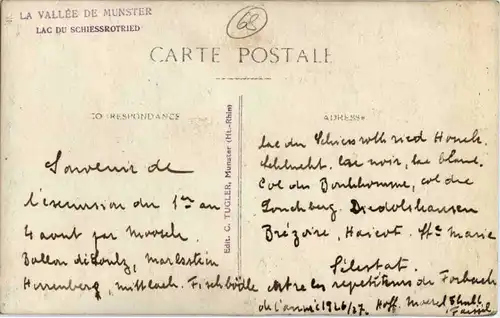 LA VALLÉE DE MUNSTER
LAC DU SCHIESSROTRIED
68
CARTE POSTALE
CORRESPONDANCE
ADRESSE
Edit. C. TUGLER, Munster (Ht.-Rhin)
Souvenir de
l'excursion du 1er au
4 aout par Moosch
Ballon de Soultz, Markstein
Herrenberg, Mittlach. Fischbödle
lac du Schiessrothried Honeck.
Schlucht. Lac noir, lac blanc.
Col du Bonhomme, col de
Louchberg. Diedolshausen
Brézoire, Haicot. Ste Marie
Sélestat.
les repetiteurs de Forbach
de l'année 1926/27. Hoff.